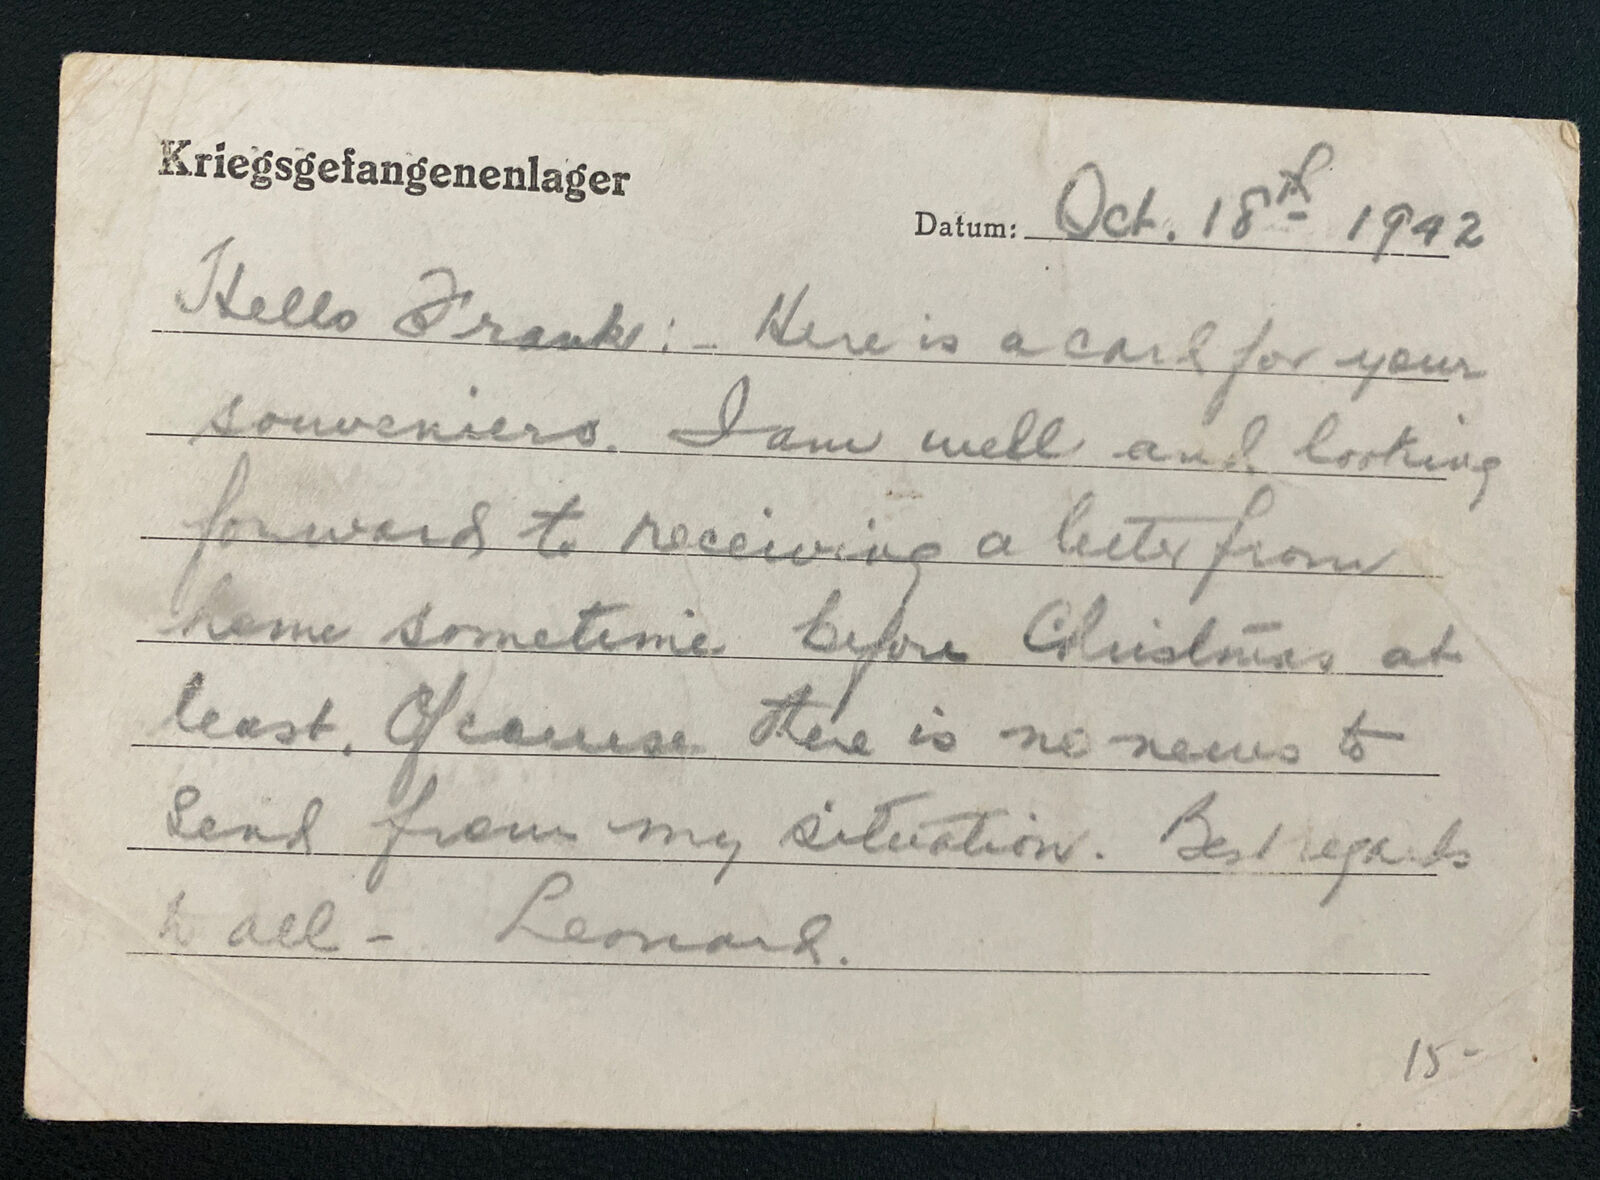 Kriegsgefangenenlager
Datum: Oct. 18th 1942
Hello Frank:- Here is a card for your
souveniers. I am well and looking
forward to receiving a letter from
home sometime before Christmas at
least. Of course there is no news to
send from my situation. Best regards
to all - Leonard.
15-